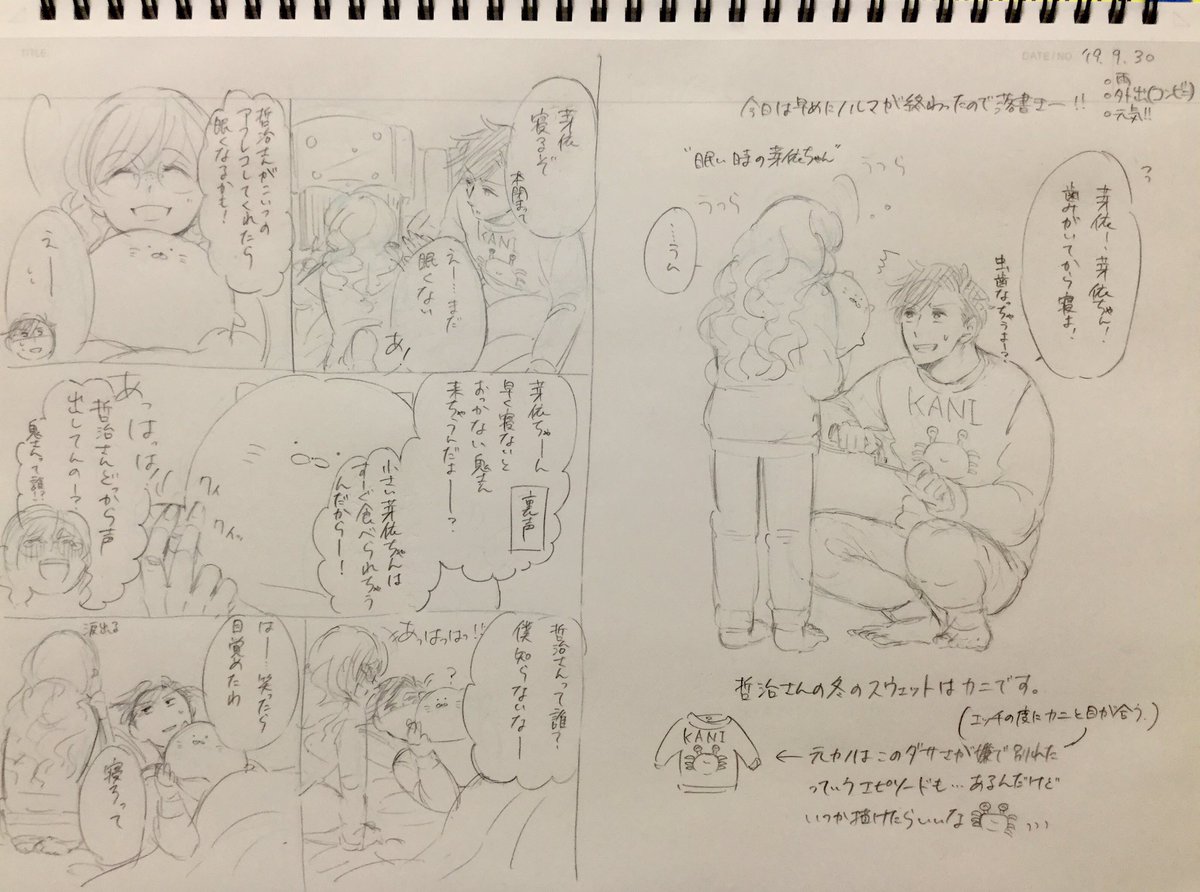 TITLE
DATE/NO
'19. 9. 30
○雨
○外出(コンビニ)
○元気!!
今日は早めにノルマが終わったので落書きー!!
"眠い時の芽依ちゃん"
うつら
うつら
…うん
芽依ー!芽依ちゃん!
歯みがいてから寝よ!
虫歯なっちゃうよー?
KANI
哲治さんの冬のスウェットはカニです。
(エッチの度にカニと目が合う。)
KANI
←元カノはこのダサさが嫌で別れた
っていうエピソードも…あるんだけど
いつか描けたらいいな
芽依
寝るぞ
本閉まって
KANI
えー…まだ
眠くない
あ!
哲治さんがこいつの
アフレコしてくれたら
眠くなるかも!
えー…
芽依ちゃーん
早く寝ないと
おっかない鬼さん
来ちゃうんだよーー?
裏声
小さい芽依ちゃんは
すぐ食べられちゃう
んだからー!
クイ
クイッ
あっはっは!
哲治さんどっから声
出してんのー?
鬼さんって誰!?
哲治さんって誰?
僕知らないなー
あっはっはっ!!
?
はー…笑ったら
目覚めたわ
涙出る
寝ろって